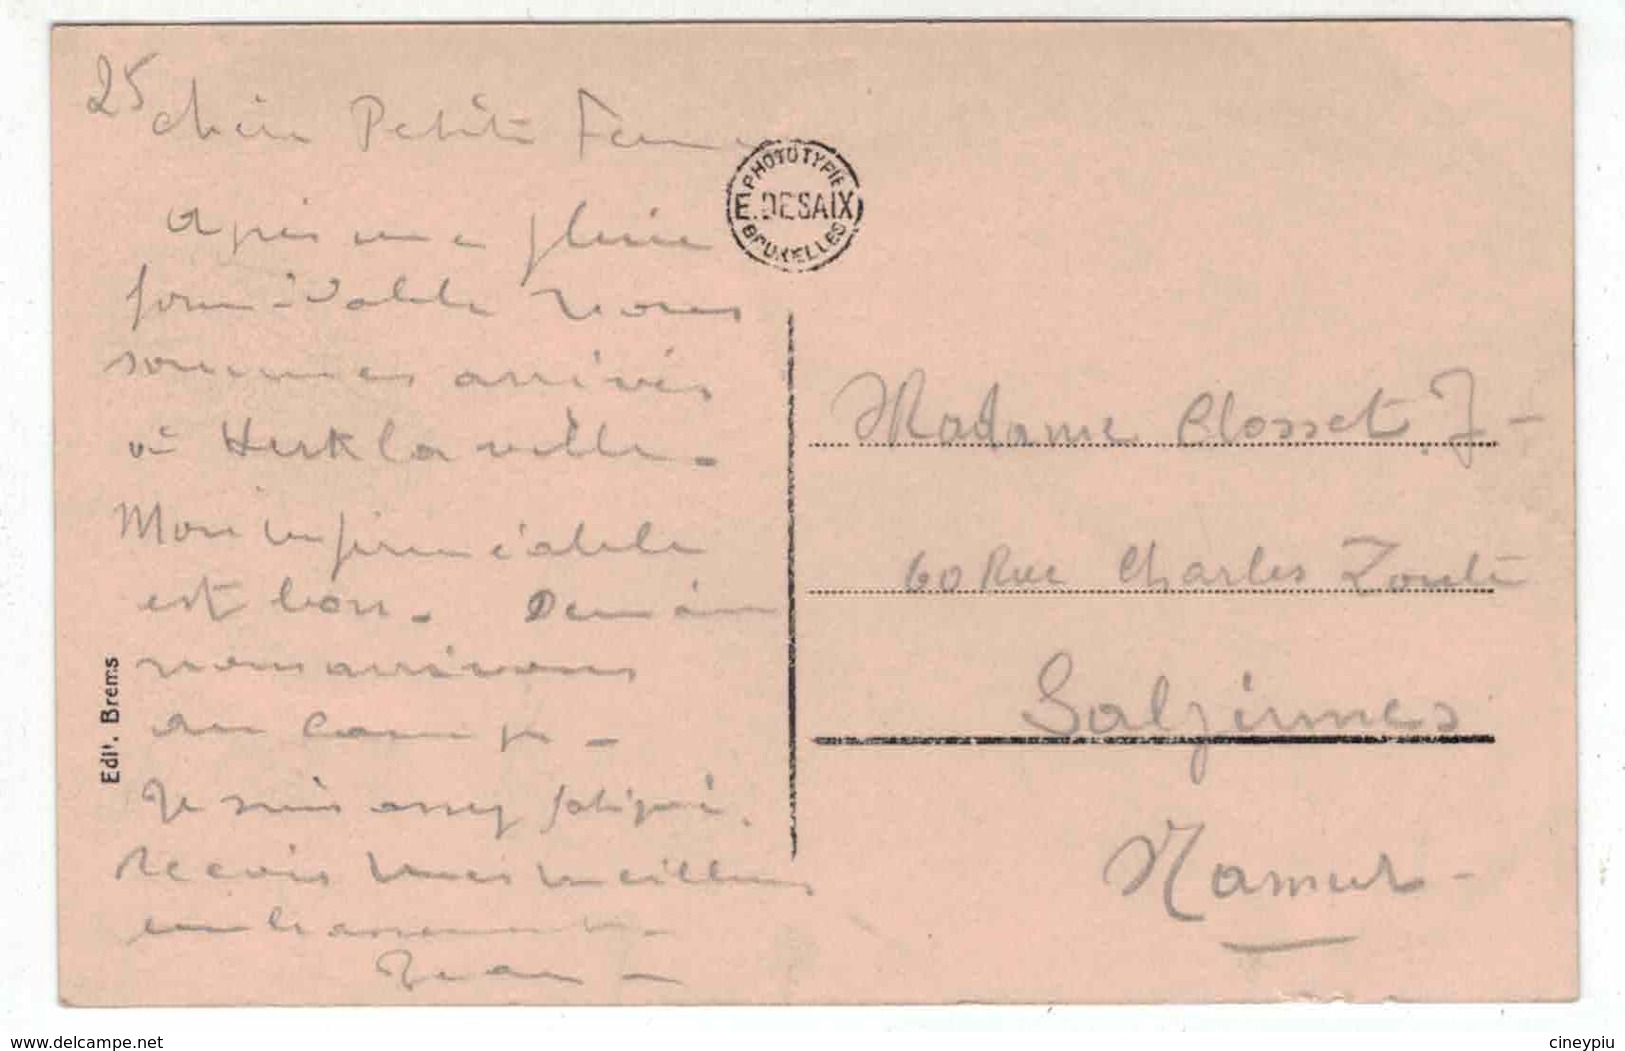 25
Chère Petite Femme
Après une pluie
formidable nous
sommes arrivés
à Herk la ville -
Mon imperméable
est bon - Demain
nous arrivons
au camp -
Je suis assez fatigué.
Recois mes meilleurs
embrassements -
Jean -
PHOTOTYPIE
E. DESAIX
BRUXELLES
Edit. Brems
Madame Closset J -
60 Rue Charles Zoude
Salzinnes
Namur -
www.delcampe.net
cineypiu